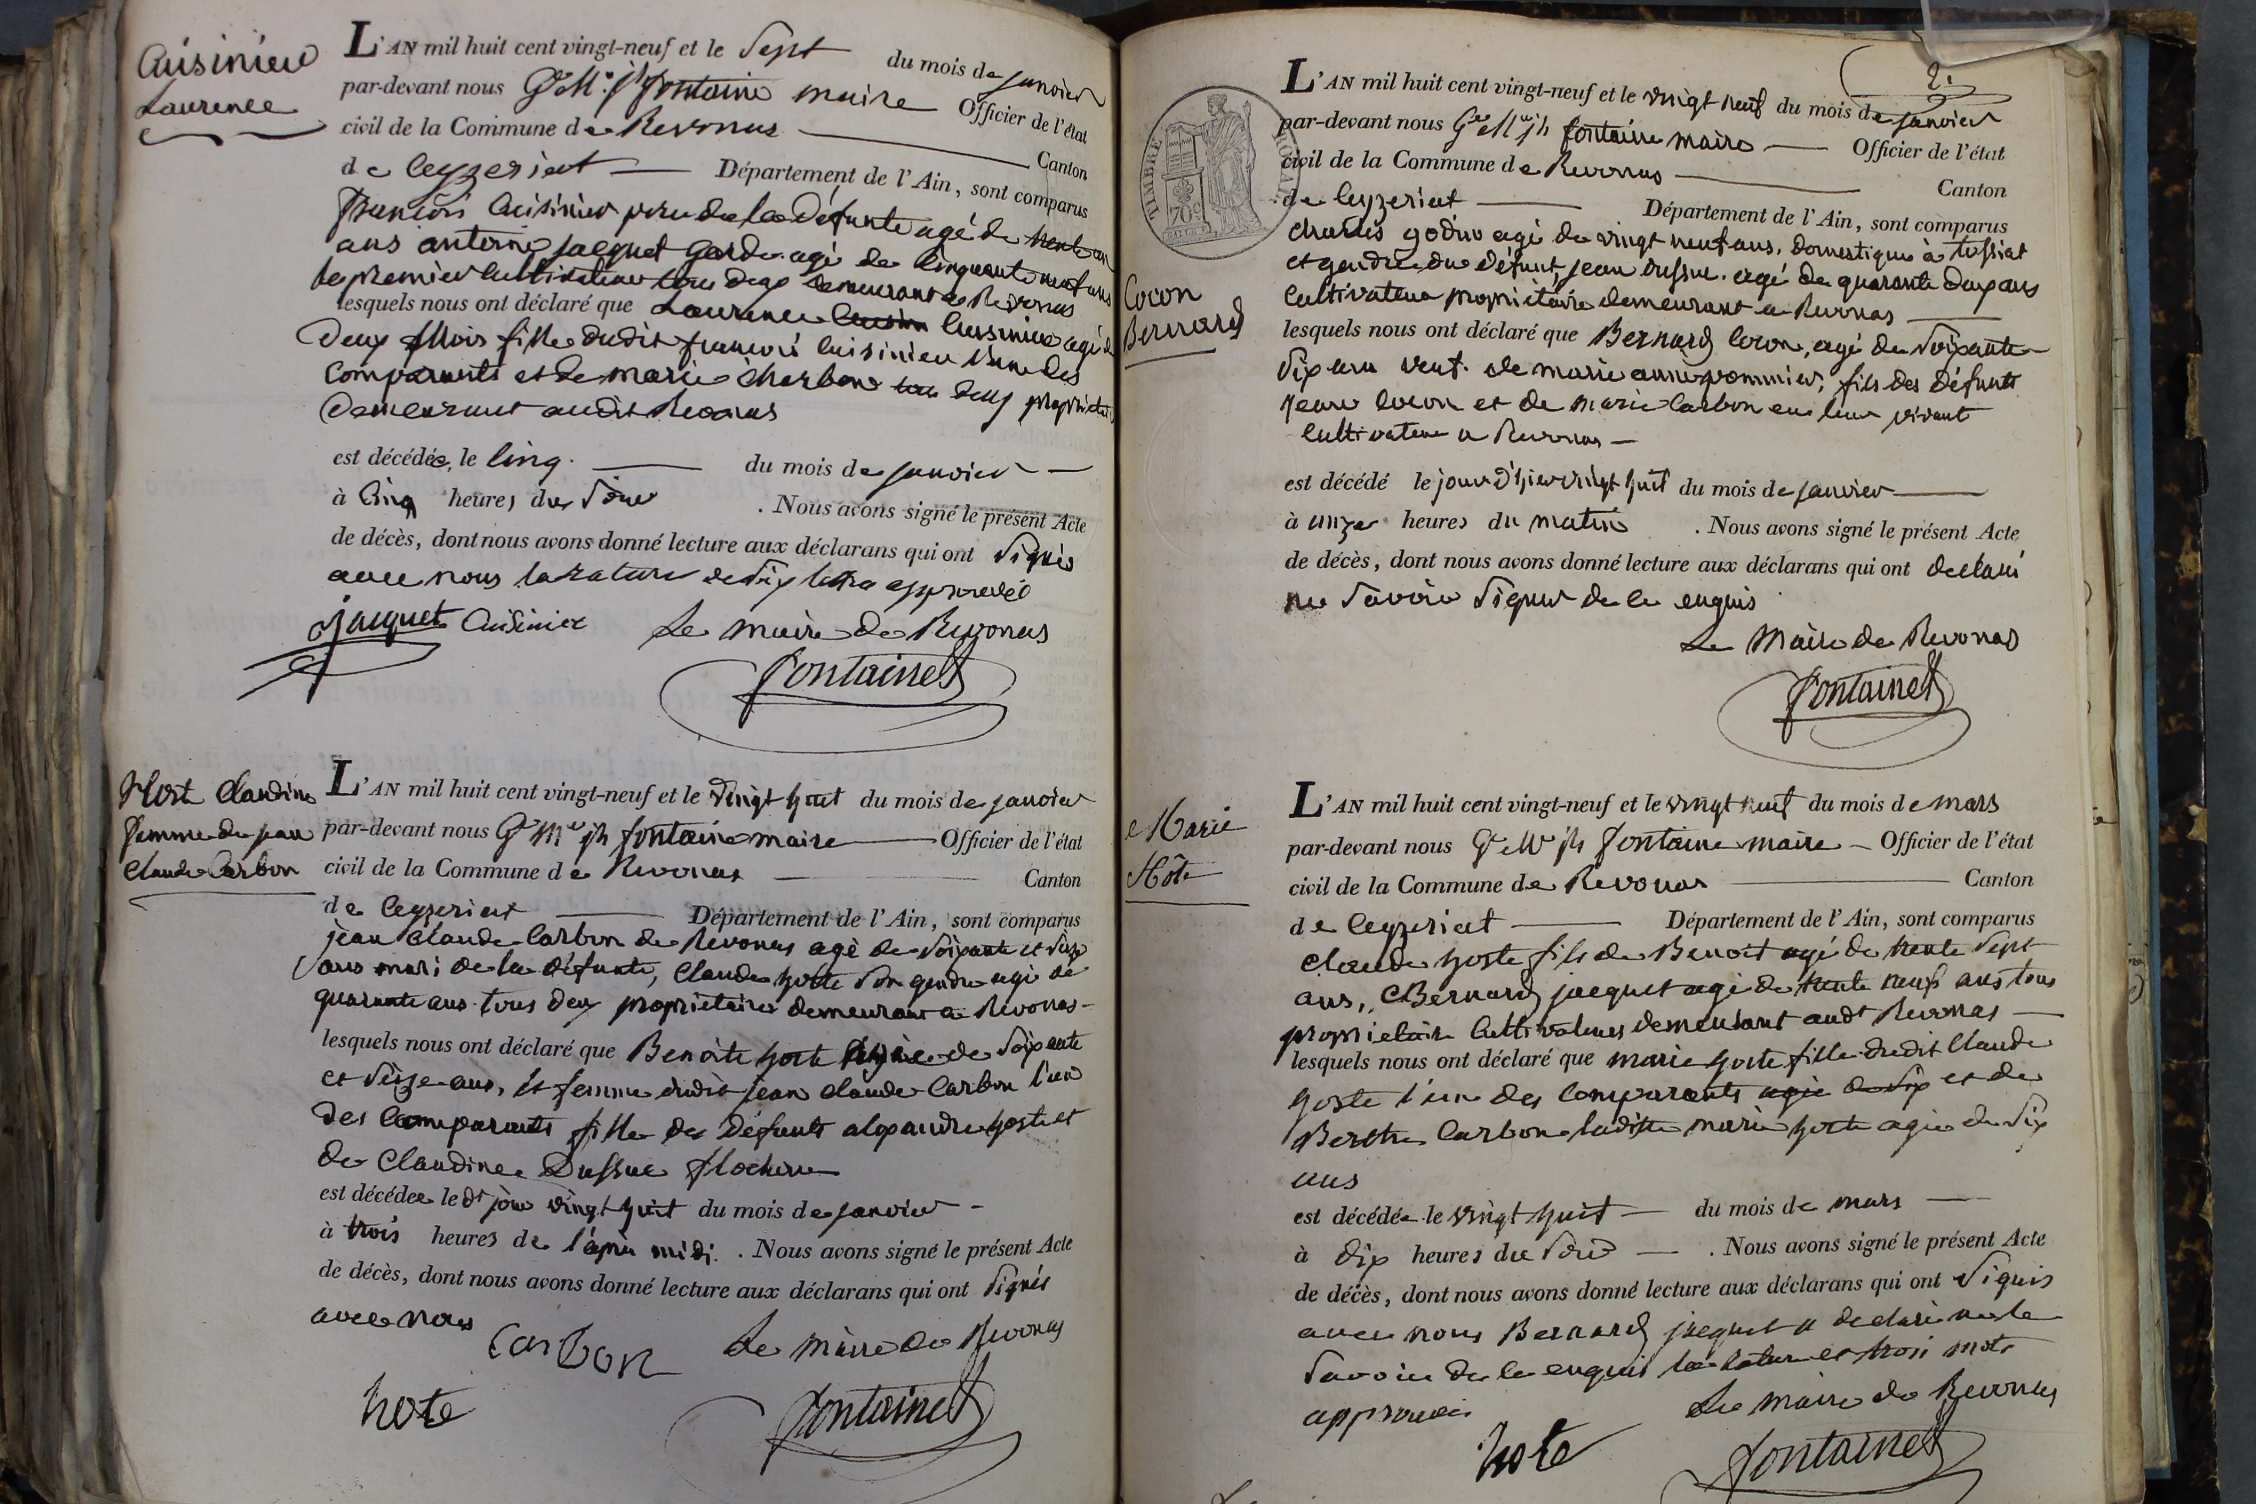 Cuisinieu
Laurence
L'AN mil huit cent vingt-neuf et le Sept du mois de janvier
par-devant nous maire Officier de l'état
civil de la Commune de Revonnas Canton
de Ceyzeriat Département de l'Ain, sont comparus
françois Cuisinier pere de la Défunte agé de trente un
ans antoine jacquet Garde agé de Cinquante neuf ans
le premier Cultivateur tous deux demeurant a Revonas
lesquels nous ont déclaré que Laurence Cuisinier agé de
Deux Mois fille dudit françois Cuisinieu l'un des
Comparants et de marie Charbon tous deux propriétai
Demeurant audit Revonas
est décédée, le Cinq du mois de janvier
à Cinq heures du Soir . Nous avons signé le présent Acte
de décès, dont nous avons donné lecture aux déclarans qui ont Signés
avec nous la rature de Six lettre approuvée
Jacquet Cuisinier Le maire de Revonas
fontaine
Host Claudine
femme de jean
Claude Carbon
L'AN mil huit cent vingt-neuf et le Vingt huit du mois de janvier
par-devant nous fontaine maire Officier de l'état
civil de la Commune de Revonas Canton
de Ceyzeriat Département de l'Ain, sont comparus
jean Claude Carbon de Revonas agé de Soixante et Seize
ans mari de la défunte, Claude hotte Son gendre agé de
quarante ans tous deux propriétaires demeurant a Revonas
lesquels nous ont déclaré que Benoite hoste agée de Soixante
et Seize ans, et femme dudit jean Claude Carbon l'un
des Comparants fille des Défunts alexandre hoste et
de Claudine Dussue
est décédée le dt jour vingt huit du mois de janvier
à trois heures de l'après midi . Nous avons signé le présent Acte
de décès, dont nous avons donné lecture aux déclarans qui ont Signés
avec nous
Carbon Le maire de Revonas
hote fontaine
2.
TIMBRE ROYAL
70c
L'AN mil huit cent vingt-neuf et le vingt neuf du mois de janvier
par-devant nous fontaine maire Officier de l'état
civil de la Commune de Revonas Canton
de Ceyzeriat Département de l'Ain, sont comparus
Cocon
Bernard
charles godin agé de vingt neuf ans, domestique à tossiat
et gendre du défunt jean dussue agé de quarante deux ans
Cultivateur propriétaire demeurant a Revonas
lesquels nous ont déclaré que Bernard Cocon, agé de Soixante
Six ans veuf de marie anne pommier, fils des défunts
jean Cocon et de marie Carbon en leur vivant
Cultivateur a Revonas
est décédé le jour d'hier vingt huit du mois de janvier
à onze heures du matin . Nous avons signé le présent Acte
de décès, dont nous avons donné lecture aux déclarans qui ont declaré
ne Savoir Signer de ce enquis
Le Maire de Revonas
fontaine
Marie
Hôte
L'AN mil huit cent vingt-neuf et le vingt neuf du mois de mars
par-devant nous fontaine maire Officier de l'état
civil de la Commune de Revonas Canton
de Ceyzeriat Département de l'Ain, sont comparus
Claude hoste fils de Benoit agé de trente Sept
ans, Bernard jacquet agé de trente neuf ans tous
proprietaire Cultivateurs demeurant audt Revonas
lesquels nous ont déclaré que marie hoste fille dudit Claude
hoste l'un des Comparants agée de Six et de
Berthe Carbon ladite marie hoste agée de Six
ans
est décédée le vingt huit du mois de mars
à Dix heures du Soir . Nous avons signé le présent Acte
de décès, dont nous avons donné lecture aux déclarans qui ont Signés
avec nous Bernard jacquet a declaré ne le
Savoir de ce enquis la rature et trois mots
approuvés Le maire de Revonas
hote fontaine